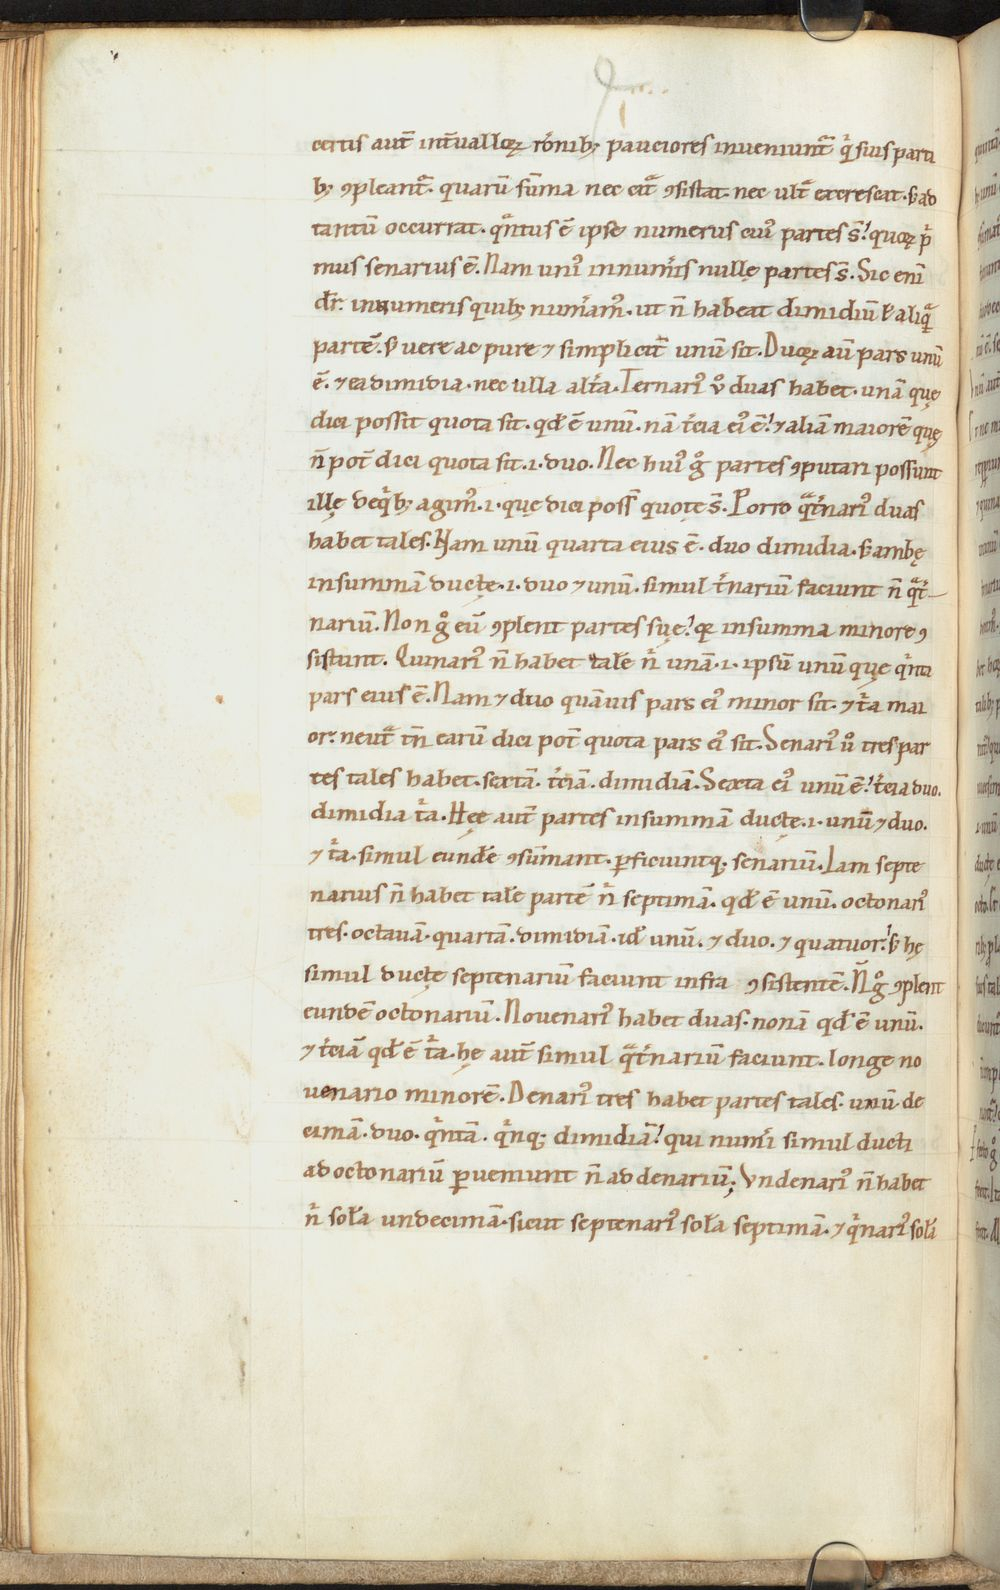 certis aut̄ int̄uallorꝝ rōnib; pauciores inueniunt᷑ q̇ suis parti
b; ꝯpleant᷑. quarū sūma nec cit᷑ ꝯsistat. nec ult᷑ excrescat. ꝩ ad
tantū occurrat. qᷓntus ē ipse numerus cuiꝰ partes s̄. quoꝝ p̍
mus senarius ē. Nam unꝰ in num̍is nullę partes s̄. Sic enī
dr̄. in numeris quib; num̍amꝰ. ut n̄ habeat dimidiū ł aliqᷓ
partē. ꝩ uere ac pure ⁊ simplicit̄ unū sit. Duoꝝ aū pars unū
ē. ⁊ ea dimidia. nec ulla alt̍a. Ternariꝰ ů duas habet. unā quę
dici possit quota sit. qđ ē unū. nā t̍cia eiꝰ ē. ⁊ aliā maiorē quę
n̄ pot̄ dici quota sit .i. duo. Nec huiꝰ g̊ partes ꝯputari possunt
illę de q̇b; agimꝰ .i. quę dici poss̄ quotę s̄. Porro qᷓt̍nariꝰ duas
habet tales. Nam unū quarta eius ē. duo dimidia. ꝩ ambę
in summā ductę .i. duo ⁊ unū. simul t̍nariū faciunt n̄ qᷓt̍
nariū. Non g̊ eū ꝯplent partes suę. qꝛ in summa minore ꝯ
sistunt. Quinariꝰ n̄ habet talē n̍ unā .i. ipsū unū quę q̍nta
pars eius ē. Nam ⁊ duo quāuis pars eiꝰ minor sit. ⁊ t̍a mai
or. neut᷑ tn̄ earū dici pot̄ quota pars eiꝰ sit. Senariꝰ ů tres par
tes tales habet. sextā. t̍ciā. dimidiā. Sexta eiꝰ unū ē. t̍cia duo.
dimidia t̍a. Hęę aut̄ partes in summā ductę .i. unū ⁊ duo.
⁊ t̍a. simul eundē ꝯsūmant. ꝑficiuntq;. senariū. Iam septe
narius n̄ habet talē partē n̍ septimā. qđ ē unū. octonariꝰ
tres. octauā. quartā. dimidiā. iđ unū. ⁊ duo. ⁊ quatuor. ꝩ hę
simul ductę septenariū faciunt infra ꝯsistentē. N̄ g̊ ꝯplent
eundē octonariū. Nouenariꝰ habet duas. nonā qđ ē unū.
⁊ t̍ciā qđ ē t̍a. hę aut̄ simul qᷓt̍nariū faciunt. longe no
uenario minorē. Denariꝰ tres habet partes tales. unū de
cimā. duo. q̍ntā. q̍nq; dimidiā. qui num̍i simul ducti
ad octonariū ꝑueniunt n̄ ad denariū. Vndenariꝰ n̄ habet
n̍ solā undecimā. sicut septenariꝰ solā septimā. ⁊ q̍nariꝰ solā